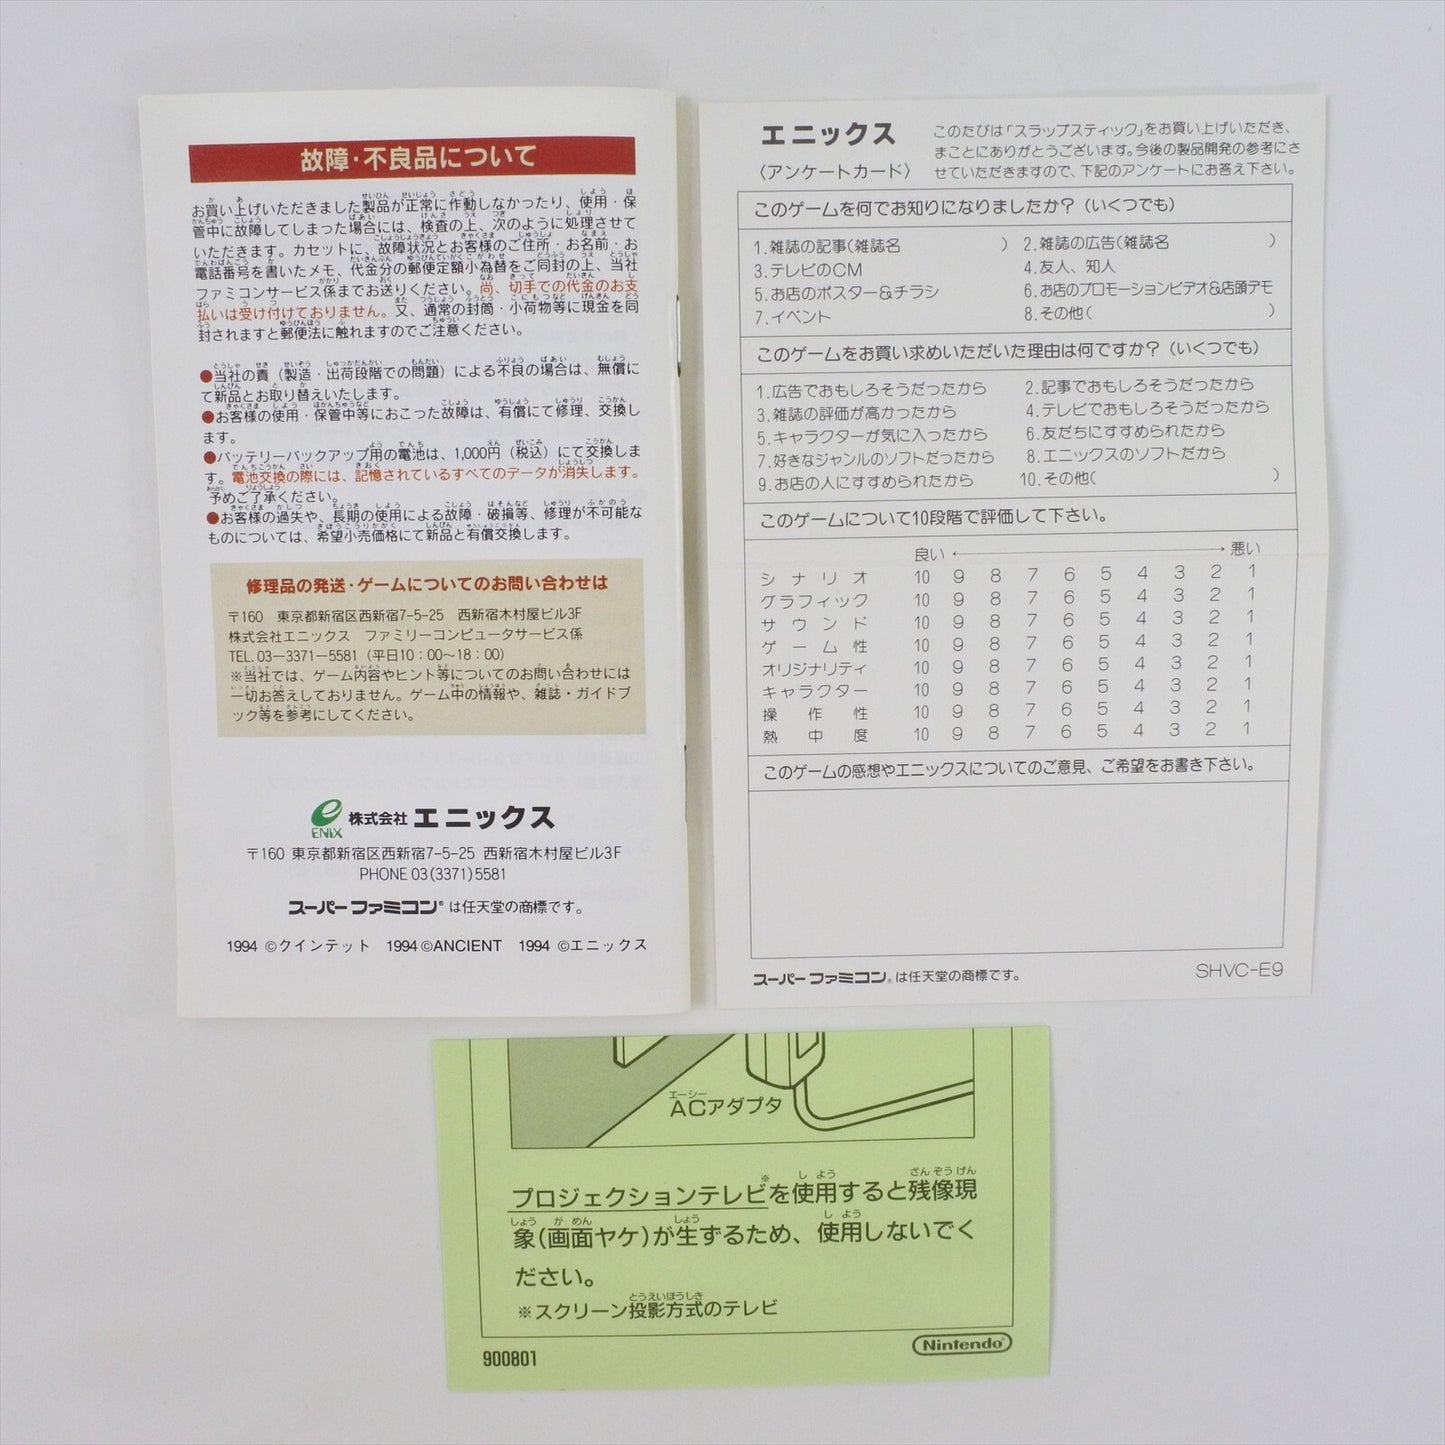 故障・不良品について
お買い上げいただきました製品が正常に作動しなかったり、使用・保
管中に故障してしまった場合には、検査の上、次のように処理させて
いただきます。カセットに、故障状況とお客様のご住所・お名前・お
電話番号を書いたメモ、代金分の郵便定額小為替をご同封の上、当社
ファミコンサービス係までお送りください。尚、切手での代金のお支
払いは受け付けておりません。又、通常の封筒・小荷物等に現金を同
封されますと郵便法に触れますのでご注意ください。
●当社の責（製造・出荷段階での問題）による不良の場合は、無償に
て新品とお取り替えいたします。
●お客様の使用・保管中等におこった故障は、有償にて修理、交換し
ます。
●バッテリーバックアップ用の電池は、1,000円（税込）にて交換しま
す。電池交換の際には、記憶されているすべてのデータが消失します。
予めご了承ください。
●お客様の過失や、長期の使用による故障・破損等、修理が不可能な
ものについては、希望小売価格にて新品と有償交換します。
修理品の発送・ゲームについてのお問い合わせは
〒160 東京都新宿区西新宿7-5-25 西新宿木村屋ビル3F
株式会社エニックス ファミリーコンピュータサービス係
TEL.03-3371-5581（平日10：00～18：00）
※当社では、ゲーム内容やヒント等についてのお問い合わせには
一切お答えしておりません。ゲーム中の情報や、雑誌・ガイドブ
ック等を参考にしてください。
ENIX 株式会社 エニックス
〒160 東京都新宿区西新宿7-5-25 西新宿木村屋ビル3F
PHONE 03(3371)5581
スーパーファミコン®は任天堂の商標です。
1994 ©クインテット 1994 ©ANCIENT 1994 ©エニックス
エニックス
〈アンケートカード〉
このたびは「スラップスティック」をお買い上げいただき、
まことにありがとうございます。今後の製品開発の参考にさ
せていただきますので、下記のアンケートにお答え下さい。
このゲームを何でお知りになりましたか？（いくつでも）
1.雑誌の記事(雑誌名 ) 2.雑誌の広告(雑誌名 )
3.テレビのCM 4.友人、知人
5.お店のポスター＆チラシ 6.お店のプロモーションビデオ＆店頭デモ
7.イベント 8.その他( )
このゲームをお買い求めいただいた理由は何ですか？（いくつでも）
1.広告でおもしろそうだったから 2.記事でおもしろそうだったから
3.雑誌の評価が高かったから 4.テレビでおもしろそうだったから
5.キャラクターが気に入ったから 6.友だちにすすめられたから
7.好きなジャンルのソフトだったから 8.エニックスのソフトだから
9.お店の人にすすめられたから 10.その他( )
このゲームについて10段階で評価して下さい。
良い ← → 悪い
シナリオ 10 9 8 7 6 5 4 3 2 1
グラフィック 10 9 8 7 6 5 4 3 2 1
サウンド 10 9 8 7 6 5 4 3 2 1
ゲーム性 10 9 8 7 6 5 4 3 2 1
オリジナリティ 10 9 8 7 6 5 4 3 2 1
キャラクター 10 9 8 7 6 5 4 3 2 1
操作性 10 9 8 7 6 5 4 3 2 1
熱中度 10 9 8 7 6 5 4 3 2 1
このゲームの感想やエニックスについてのご意見、ご希望をお書き下さい。
スーパーファミコン®は任天堂の商標です。
SHVC-E9
ACアダプタ
プロジェクションテレビ※を使用すると残像現
象(画面ヤケ)が生ずるため、使用しないでく
ださい。
※スクリーン投影方式のテレビ
900801
Nintendo®